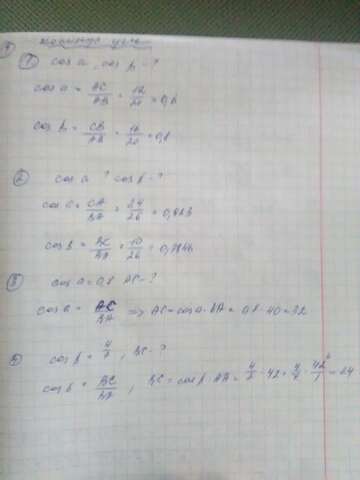 косинуса угла
① cos a, cos β - ?
cos a = AC/AB = 12/20 = 0,6
cos β = CB/AB = 16/20 = 0,8
② cos a ? cos β - ?
cos a = CA/BA = 24/26 = 0,923
cos β = BC/BA = 10/26 =
③ cos a = 0,8 AC - ?
cos a = AC/BA => AC = cos a · BA = 0,8 · 40 = 32
cos β = 4/7, BC - ?
cos β = BC/BA, BC = cos β · AB = 4/7 · 42 = 4/7 · 42/1 = 24